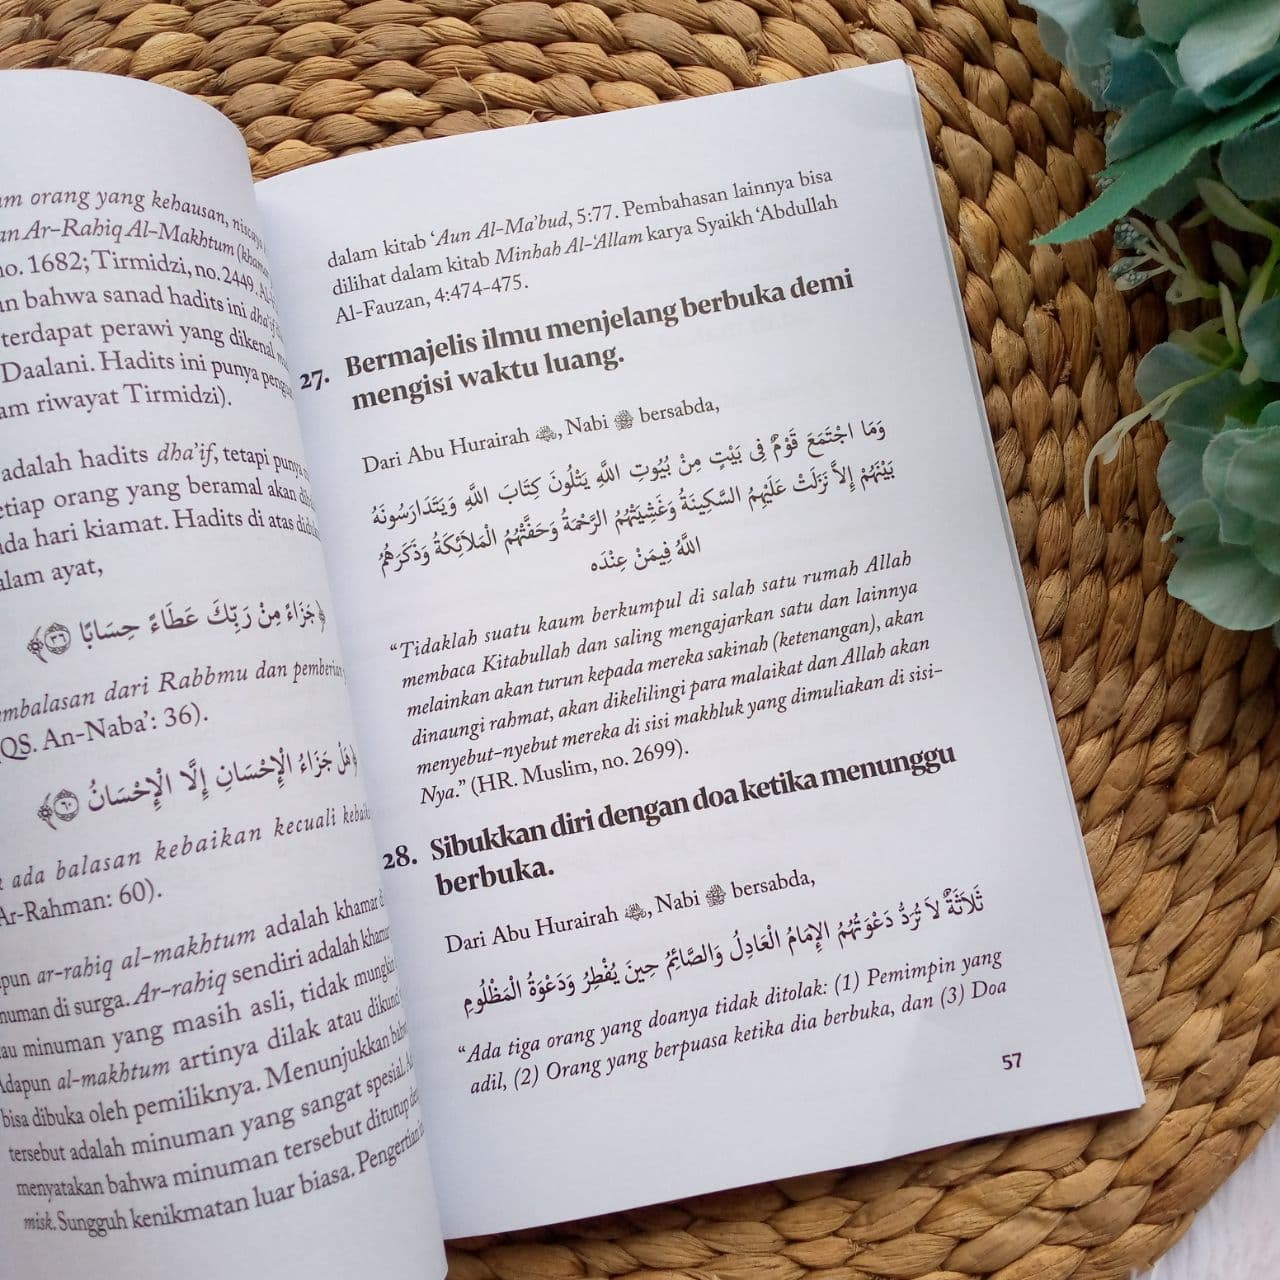 orang yang kehausan, niscaya
Ar-Rahiq Al-Makhtum
no. 1682; Tirmidzi, no. 2449.
bahwa sanad hadits ini dha'if
terdapat perawi yang dikenal
Daalani. Hadits ini punya
riwayat Tirmidzi).
adalah hadits dha'if, tetapi punya
orang yang beramal akan
hari kiamat. Hadits di atas
ayat,
﴿جَزَاءً مِنْ رَبِّكَ عَطَاءً حِسَابًا ٣٦﴾
dari Rabbmu dan
QS. An-Naba': 36).
﴿هَلْ جَزَاءُ الْإِحْسَانِ إِلَّا الْإِحْسَانُ ٦٠﴾
ada balasan kebaikan kecuali
Ar-Rahman: 60).
ar-rahiq al-makhtum adalah khamar
di surga. Ar-rahiq sendiri adalah
minuman yang masih asli, tidak mungkin
Adapun al-makhtum artinya dilak atau
bisa dibuka oleh pemiliknya. Menunjukkan
tersebut adalah minuman yang sangat spesial.
menyatakan bahwa minuman tersebut ditutup
misk. Sungguh kenikmatan luar biasa. Pengertian
dalam kitab 'Aun Al-Ma'bud, 5:77. Pembahasan lainnya bisa
dilihat dalam kitab Minhah Al-'Allam karya Syaikh 'Abdullah
Al-Fauzan, 4:474-475.
27. Bermajelis ilmu menjelang berbuka demi
mengisi waktu luang.
Dari Abu Hurairah, Nabi ﷺ bersabda,
وَمَا اجْتَمَعَ قَوْمٌ فِى بَيْتٍ مِنْ بُيُوتِ اللَّهِ يَتْلُونَ كِتَابَ اللَّهِ وَيَتَدَارَسُونَهُ
بَيْنَهُمْ إِلاَّ نَزَلَتْ عَلَيْهِمُ السَّكِينَةُ وَغَشِيَتْهُمُ الرَّحْمَةُ وَحَفَّتْهُمُ الْمَلاَئِكَةُ وَذَكَرَهُمُ
اللَّهُ فِيمَنْ عِنْدَه
"Tidaklah suatu kaum berkumpul di salah satu rumah Allah
membaca Kitabullah dan saling mengajarkan satu dan lainnya
melainkan akan turun kepada mereka sakinah (ketenangan), akan
dinaungi rahmat, akan dikelilingi para malaikat dan Allah akan
menyebut-nyebut mereka di sisi makhluk yang dimuliakan di sisi-
Nya." (HR. Muslim, no. 2699).
28. Sibukkan diri dengan doa ketika menunggu
berbuka.
Dari Abu Hurairah, Nabi ﷺ bersabda,
ثَلاَثَةٌ لاَ تُرَدُّ دَعْوَتُهُمُ الإِمَامُ الْعَادِلُ وَالصَّائِمُ حِينَ يُفْطِرُ وَدَعْوَةُ الْمَظْلُومِ
"Ada tiga orang yang doanya tidak ditolak: (1) Pemimpin yang
adil, (2) Orang yang berpuasa ketika dia berbuka, dan (3) Doa
57